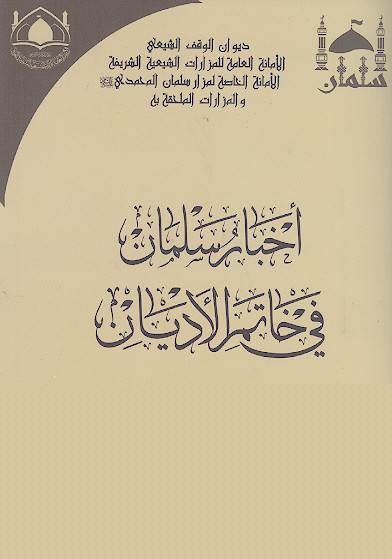 ديوان الوقف الشيعي
الأمانة العامة للمزارات الشيعية الشريفة
الأمانة الخاصة لمزار سلمان المحمدي
والمزارات الملحقة به
سلمان
أخبار سلمان
في خاتم الأديان